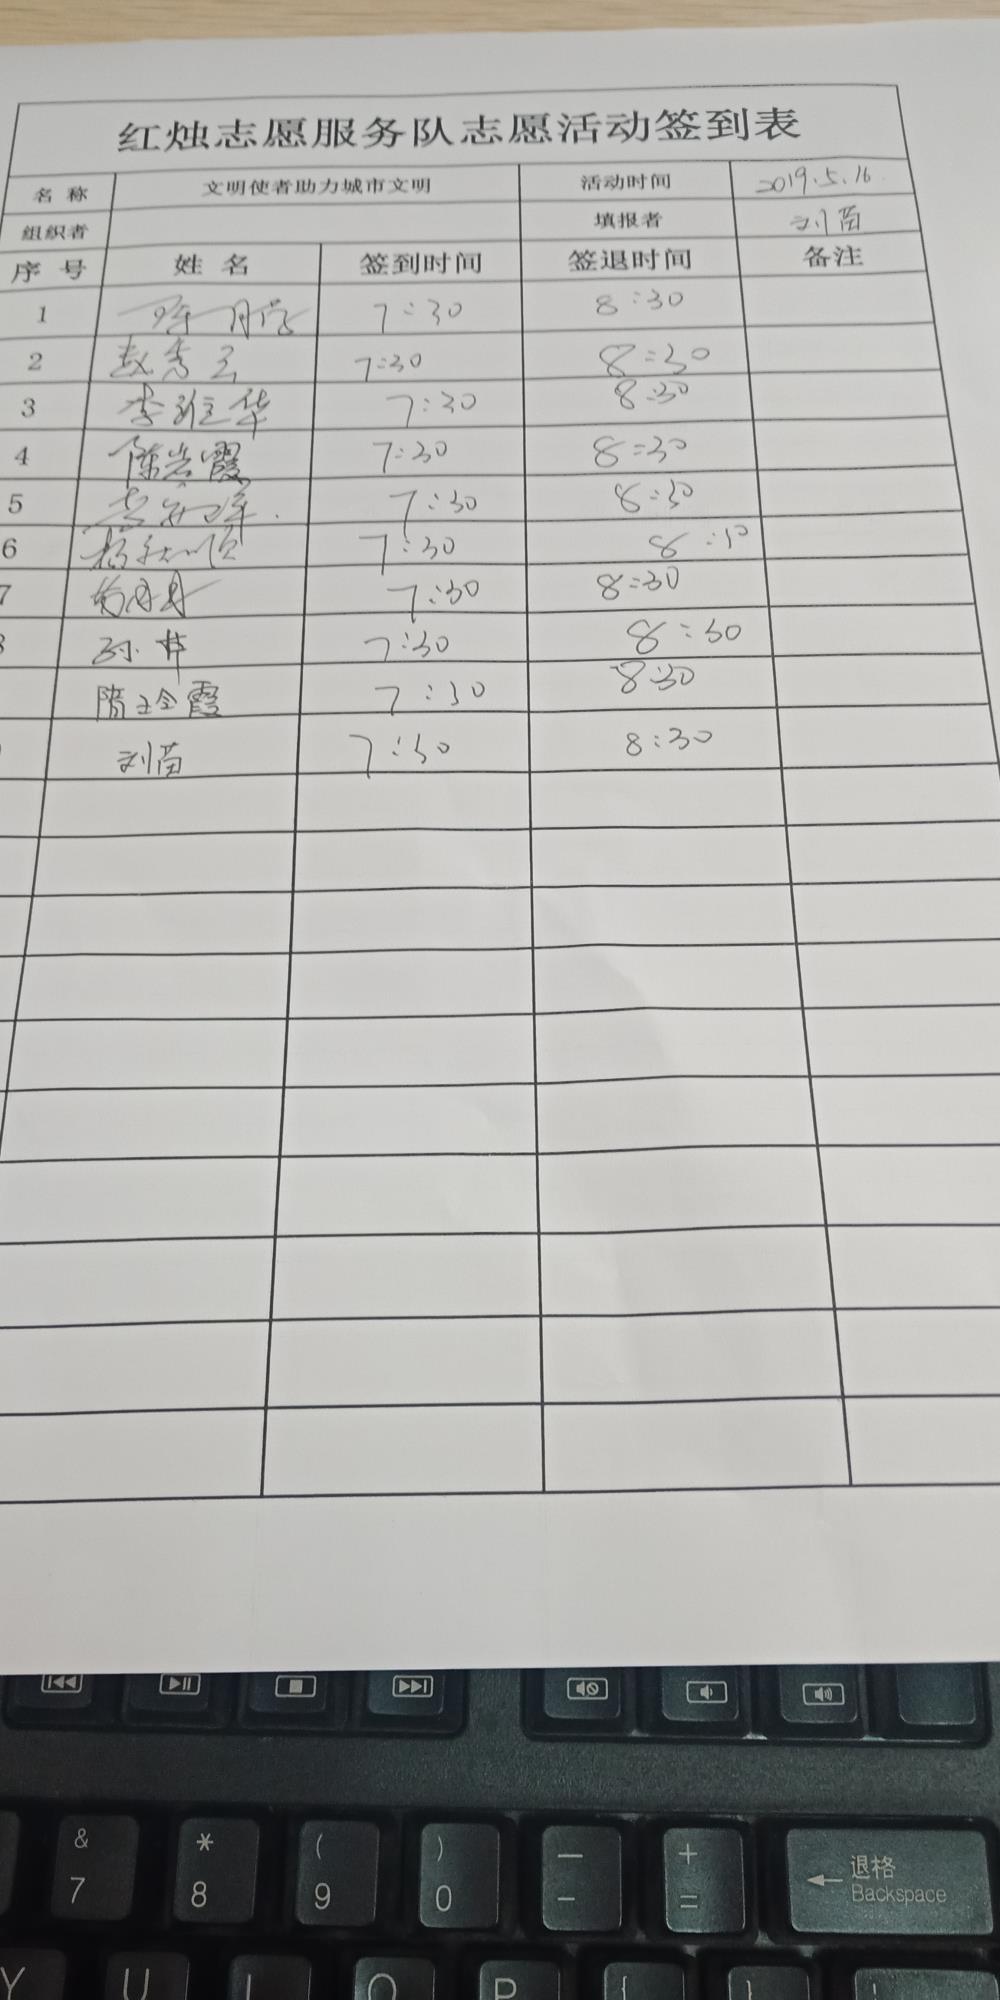 红烛志愿服务队志愿活动签到表
名 称 文明使者助力城市文明 活动时间 2019.5.16
组织者 填报者 刘苗
序 号 姓 名 签到时间 签退时间 备注
1 7:30 8:30
2 赵秀 7:30 8:30
3 李 华 7:30 8:30
4 陈岩霞 7:30 8:30
5 7:30 8:30
6 7:30 8:
7 7:30 8:30
孙 7:30 8:30
隋玲霞 7:30 8:30
刘苗 7:30 8:30
& * ( ) — +
7 8 9 0 - = 退格
Backspace
Y U I O P { }